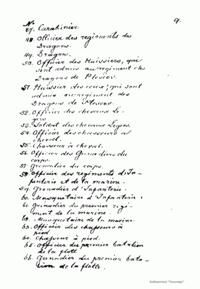 9.
No
47. Carabinier.
48. Officier des regiments des
Dragons.
49. Dragon.
50. Officier des Hussiers, qui
sont admis au regiment des
Dragons de Plescov.
51. Hussier des ceux, qui sont
admis au regiment des
Dragons de
52. Officier des chevaux
53. Soldat des chevaux Legers.
54. Officier des chasseurs à
cheval.
55. Chasseur à cheval.
56. Officier des Grenadiers du
corps.
57. Grenadier du corps.
58. Officier des regiments d'In-
fanterie et de la marine.
59. Grenadier d'Infanterie.
60. Mousquetaire d'Infanterie.
61. Grenadier du premier regi-
ment de la marine.
62. Mousquetaire de la marine.
63. Officier des chasseurs à
pied.
64. Chasseur à pied.
65. Officier du premier batalion
de la flotte.
66. Grenadier du premier bata-
lion de la flotte.